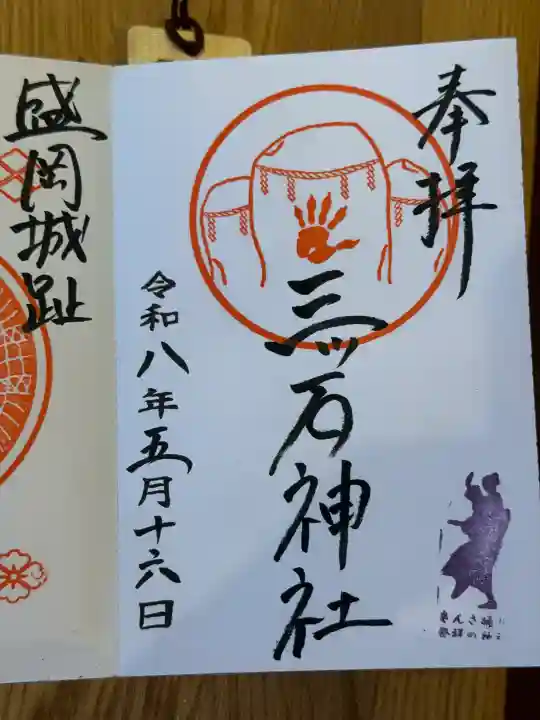 奉拝
三ツ石神社
令和八年五月十六日
さんさ踊り
発祥の神社
盛岡城趾